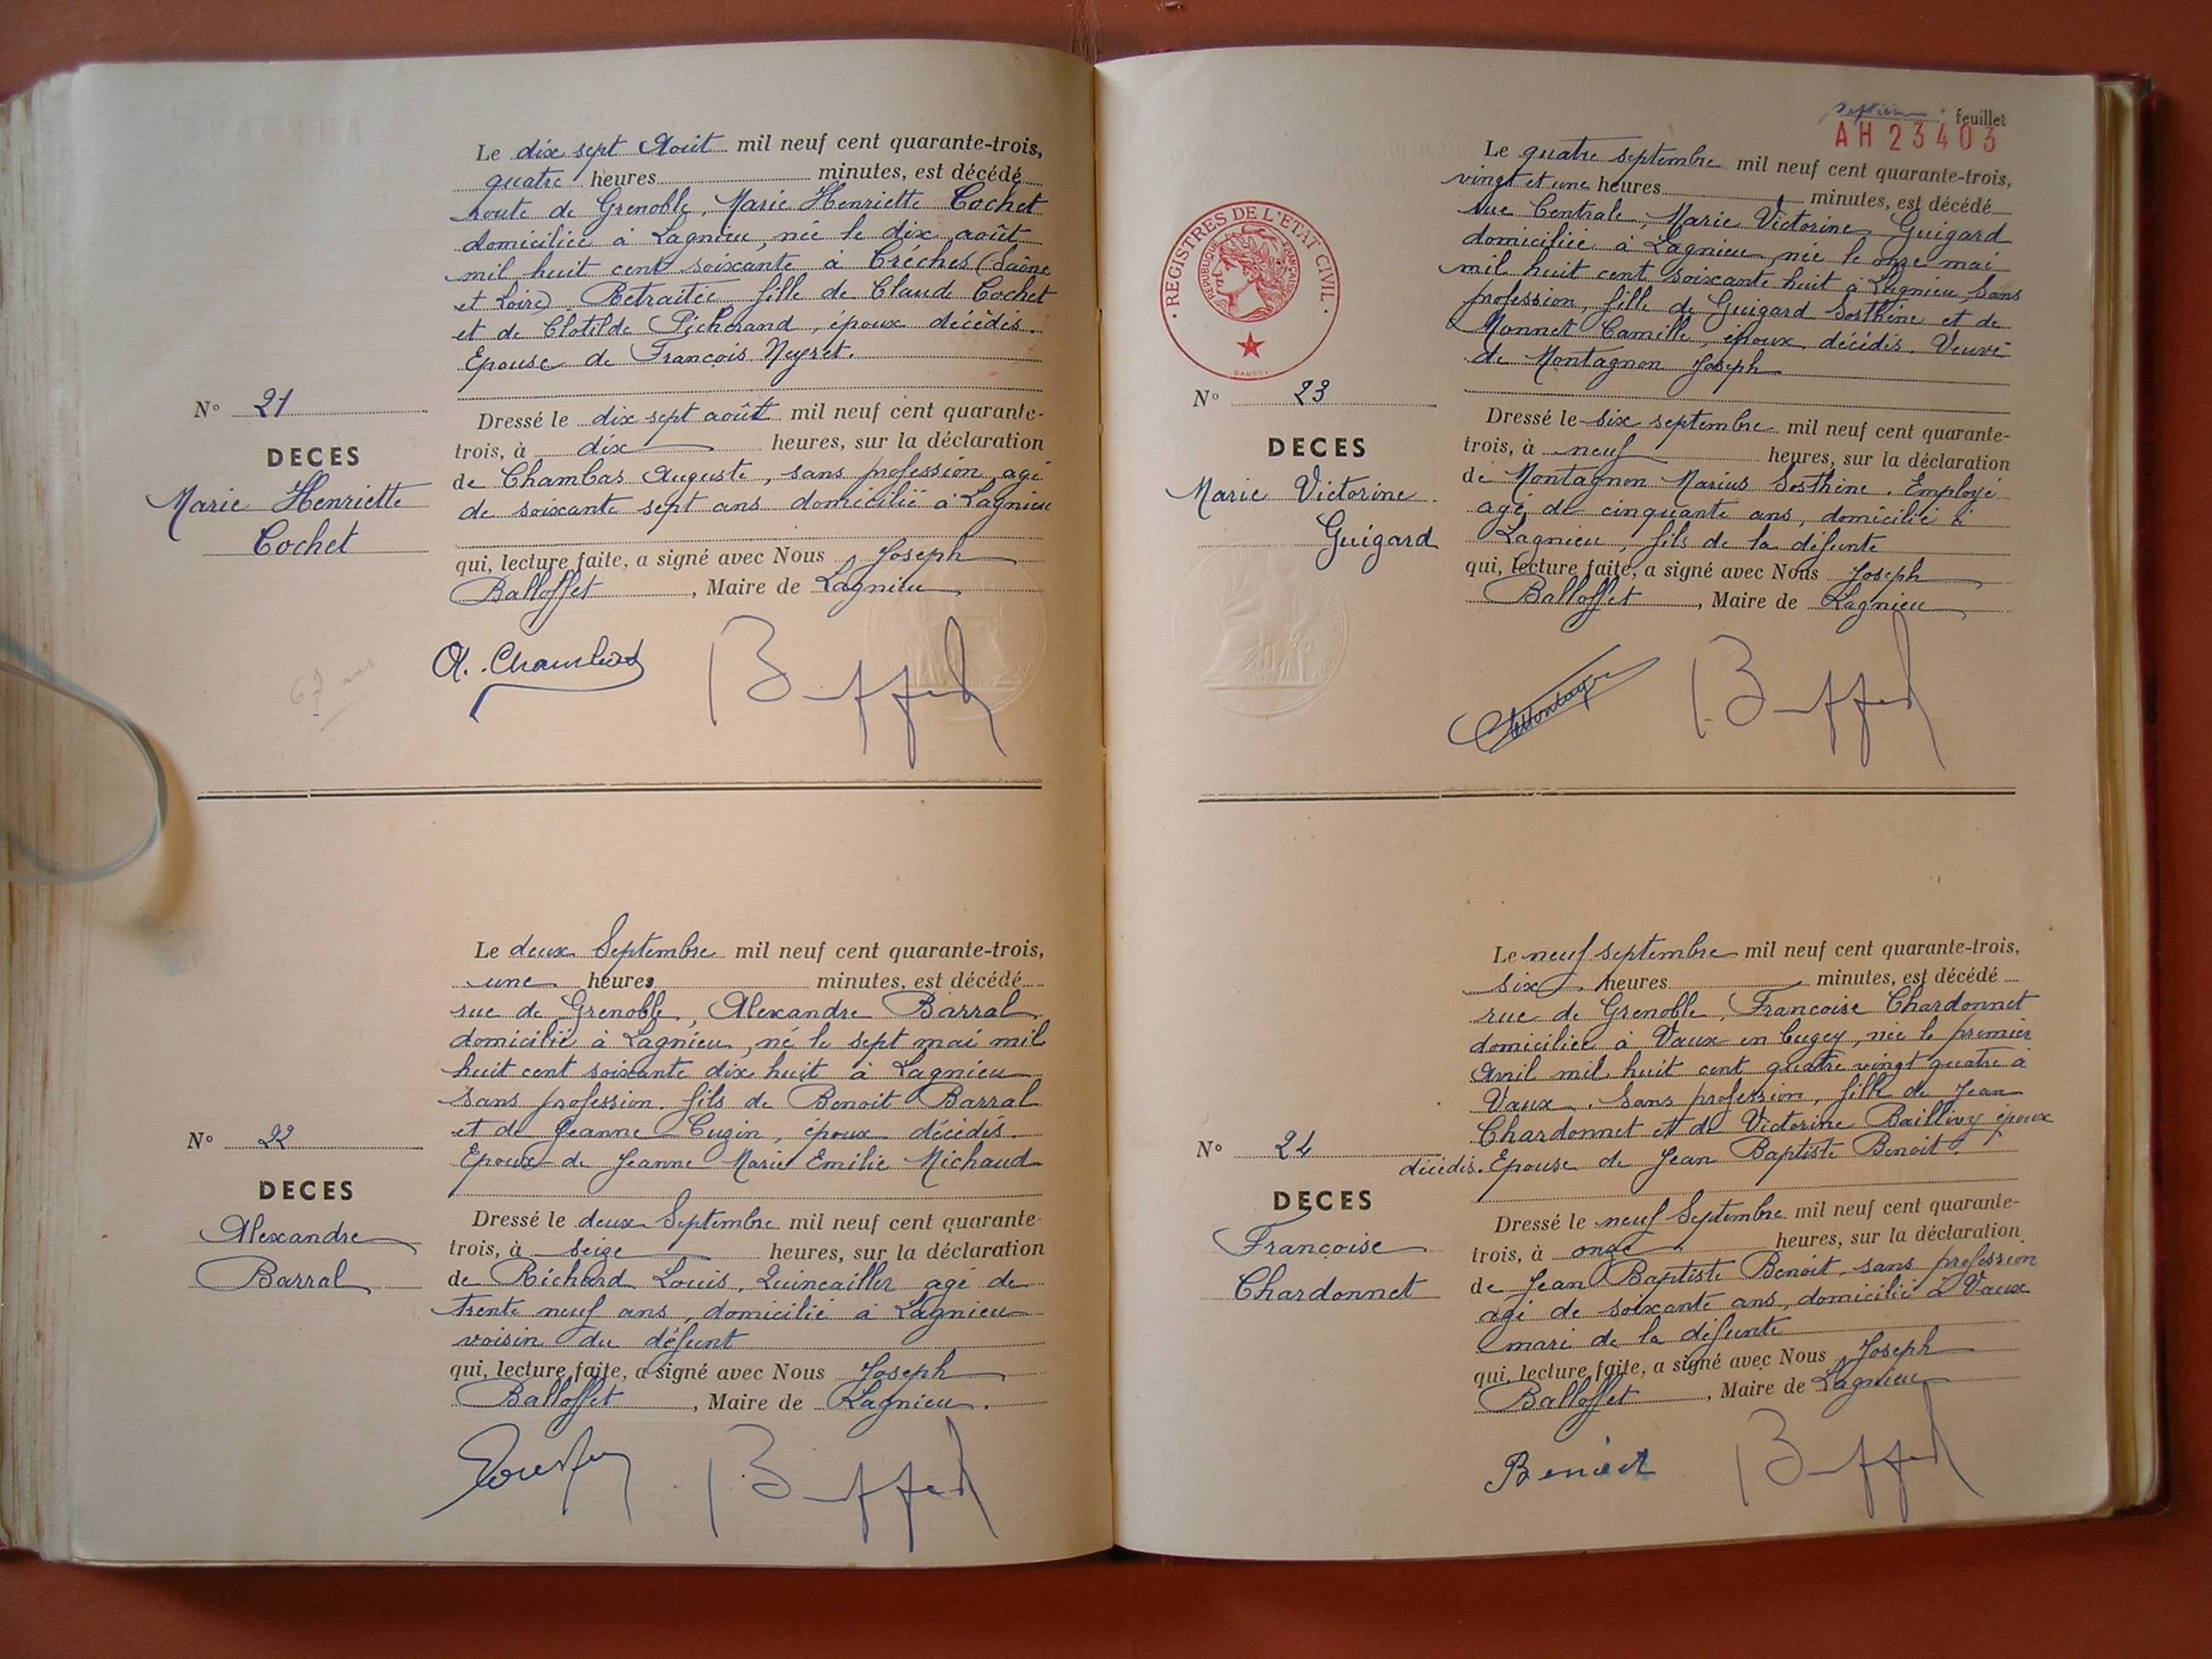 Le dix sept Août mil neuf cent quarante-trois,
quatre heures minutes, est décédé
route de Grenoble, Marie Henriette Cochet
domiciliée à Lagnieu, née le dix août
mil huit cent soixante à Crêches (Saône
et Loire) Retraitée fille de Claude Cochet
et de Clotilde Picherand, époux décédés.
Epouse de François Neyret.
N° 21
DECES
Marie Henriette
Cochet
Dressé le dix sept août mil neuf cent quarante-
trois, à dix heures, sur la déclaration
de Chambas Auguste, sans profession, agé
de soixante sept ans domicilié à Lagnieu
qui, lecture faite, a signé avec Nous Joseph
Balloffet, Maire de Lagnieu
67 ans
Le deux Septembre mil neuf cent quarante-trois,
une heures minutes, est décédé
rue de Grenoble, Alexandre Barral
domicilié à Lagnieu, né le sept mai mil
huit cent soixante dix huit à Lagnieu
Sans profession. fils de Benoit Barral
et de Jeanne Cuzin, époux décédés.
Epoux de Jeanne Marie Emilie Michaud
N° 22
DECES
Alexandre
Barral
Dressé le deux Septembre mil neuf cent quarante-
trois, à Seize heures, sur la déclaration
de Richard Louis, Quincailler agé de
trente neuf ans, domicilié à Lagnieu
voisin du défunt
qui, lecture faite, a signé avec Nous Joseph
Balloffet, Maire de Lagnieu.
feuillet
AH 23403
REGISTRES DE L'ETAT CIVIL
REPUBLIQUE FRANÇAISE
Le quatre septembre mil neuf cent quarante-trois,
vingt et une heures minutes, est décédé
rue Centrale, Marie Victorine Guigard
domiciliée à Lagnieu, née le onze mai
mil huit cent soixante huit à Lagnieu, Sans
profession, fille de Guigard Sosthène et de
Monnet Camille, époux décédés. Veuve
de Montagnon Joseph
N° 23
DECES
Marie Victorine
Guigard
Dressé le six septembre mil neuf cent quarante-
trois, à neuf heures, sur la déclaration
de Montagnon Marius Sosthène. Employé
agé de cinquante ans, domicilié à
Lagnieu, fils de la défunte
qui, lecture faite, a signé avec Nous Joseph
Balloffet, Maire de Lagnieu
Le neuf septembre mil neuf cent quarante-trois,
six heures minutes, est décédé
rue de Grenoble, Francoise Chardonnet
domiciliée à Vaux en Bugey, née le premier
Avril mil huit cent quatre vingt quatre à
Vaux. Sans profession, fille de Jean
Chardonnet et de Victorine Baillivy époux
décédés. Epouse de Jean Baptiste Benoit.
N° 24
DECES
Françoise
Chardonnet
Dressé le neuf Septembre mil neuf cent quarante-
trois, à onze heures, sur la déclaration
de Jean Baptiste Benoit, sans profession
agé de soixante ans, domicilié à Vaux
mari de la défunte
qui, lecture faite, a signé avec Nous Joseph
Balloffet, Maire de Lagnieu
Benoit